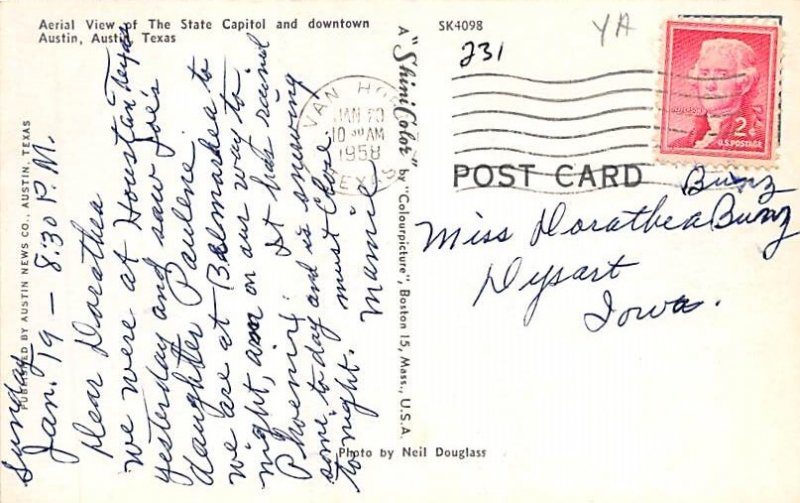 Aerial View of The State Capitol and downtown
Austin, Austin, Texas
SK4098
YA
231
VAN HORN
JAN 20
10 30 AM
1958
TEXAS
2¢
U.S. POSTAGE
POST CARD
Sunday
Jan. 19 – 8.30 P.M.
Dear Dorathea
we were at Houstan Texas
yesterday and saw Joe's
daughter Paulene
we are at Balmarhea to
night, am on our way to
Phoenix. It has rained
some to day and is snowing
to night. must close
Mamie
Bunz
Miss Dorathea Bunz
Dysart
Iowa.
PUBLISHED BY AUSTIN NEWS CO., AUSTIN, TEXAS
A "ShiniColor" by "Colourpicture", Boston 15, Mass., U.S.A.
Photo by Neil Douglass